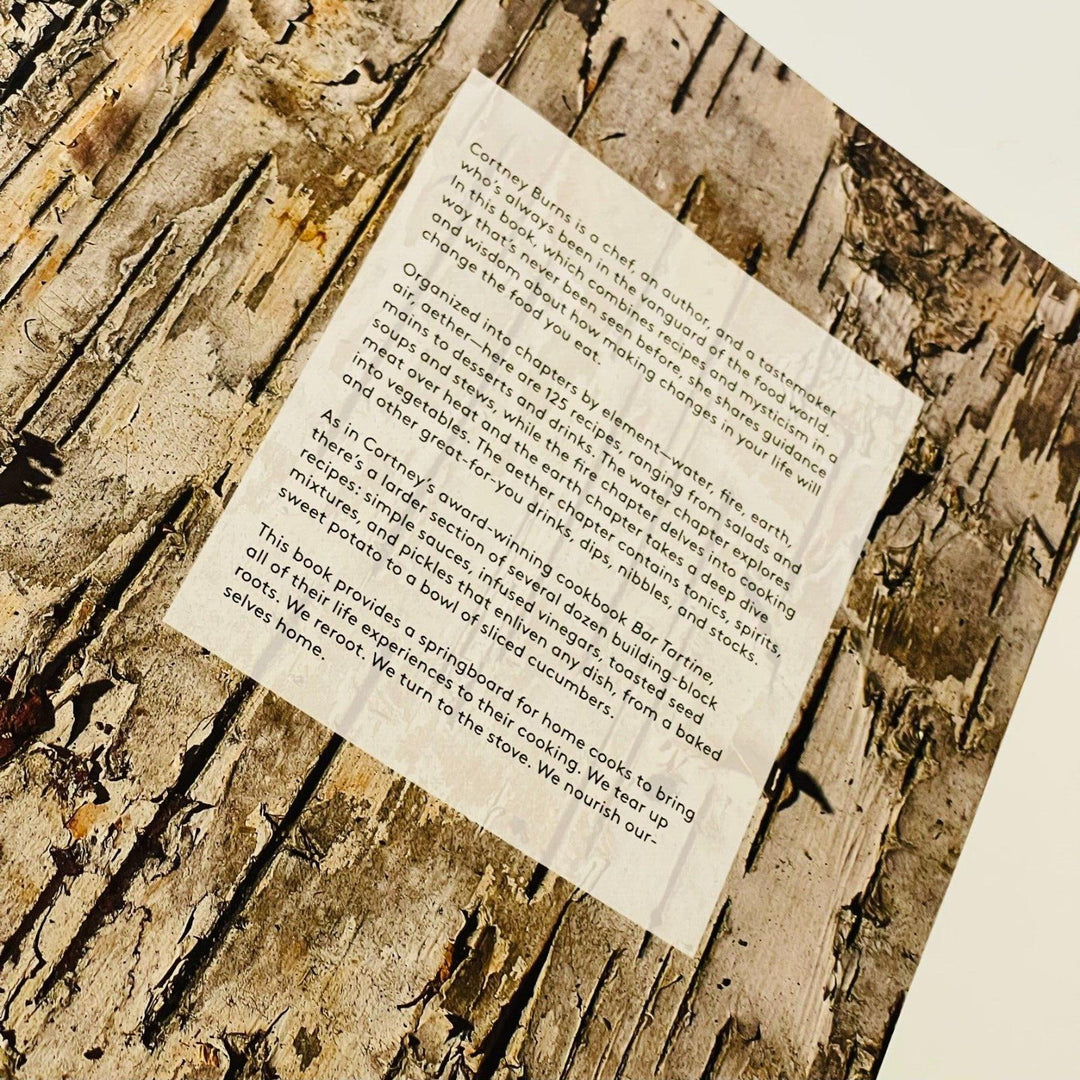 Cortney Burns is a chef, an author, and a tastemaker
who's always been in the vanguard of the food world.
In this book, which combines recipes and mysticism in a
way that's never been seen before, she shares guidance
and wisdom about how making changes in your life will
change the food you eat.
Organized into chapters by element—water, fire, earth,
air, aether—here are 125 recipes, ranging from salads and
mains to desserts and drinks. The water chapter explores
soups and stews, while the fire chapter delves into cooking
meat over heat and the earth chapter takes a deep dive
into vegetables. The aether chapter contains tonics, spirits,
and other great-for-you drinks, dips, nibbles, and stocks.
As in Cortney's award-winning cookbook Bar Tartine,
there's a larder section of several dozen building-block
recipes: simple sauces, infused vinegars, toasted seed
mixtures, and pickles that enliven any dish, from a baked
sweet potato to a bowl of sliced cucumbers.
This book provides a springboard for home cooks to bring
all of their life experiences to their cooking. We tear up
roots. We reroot. We turn to the stove. We nourish our-
selves home.